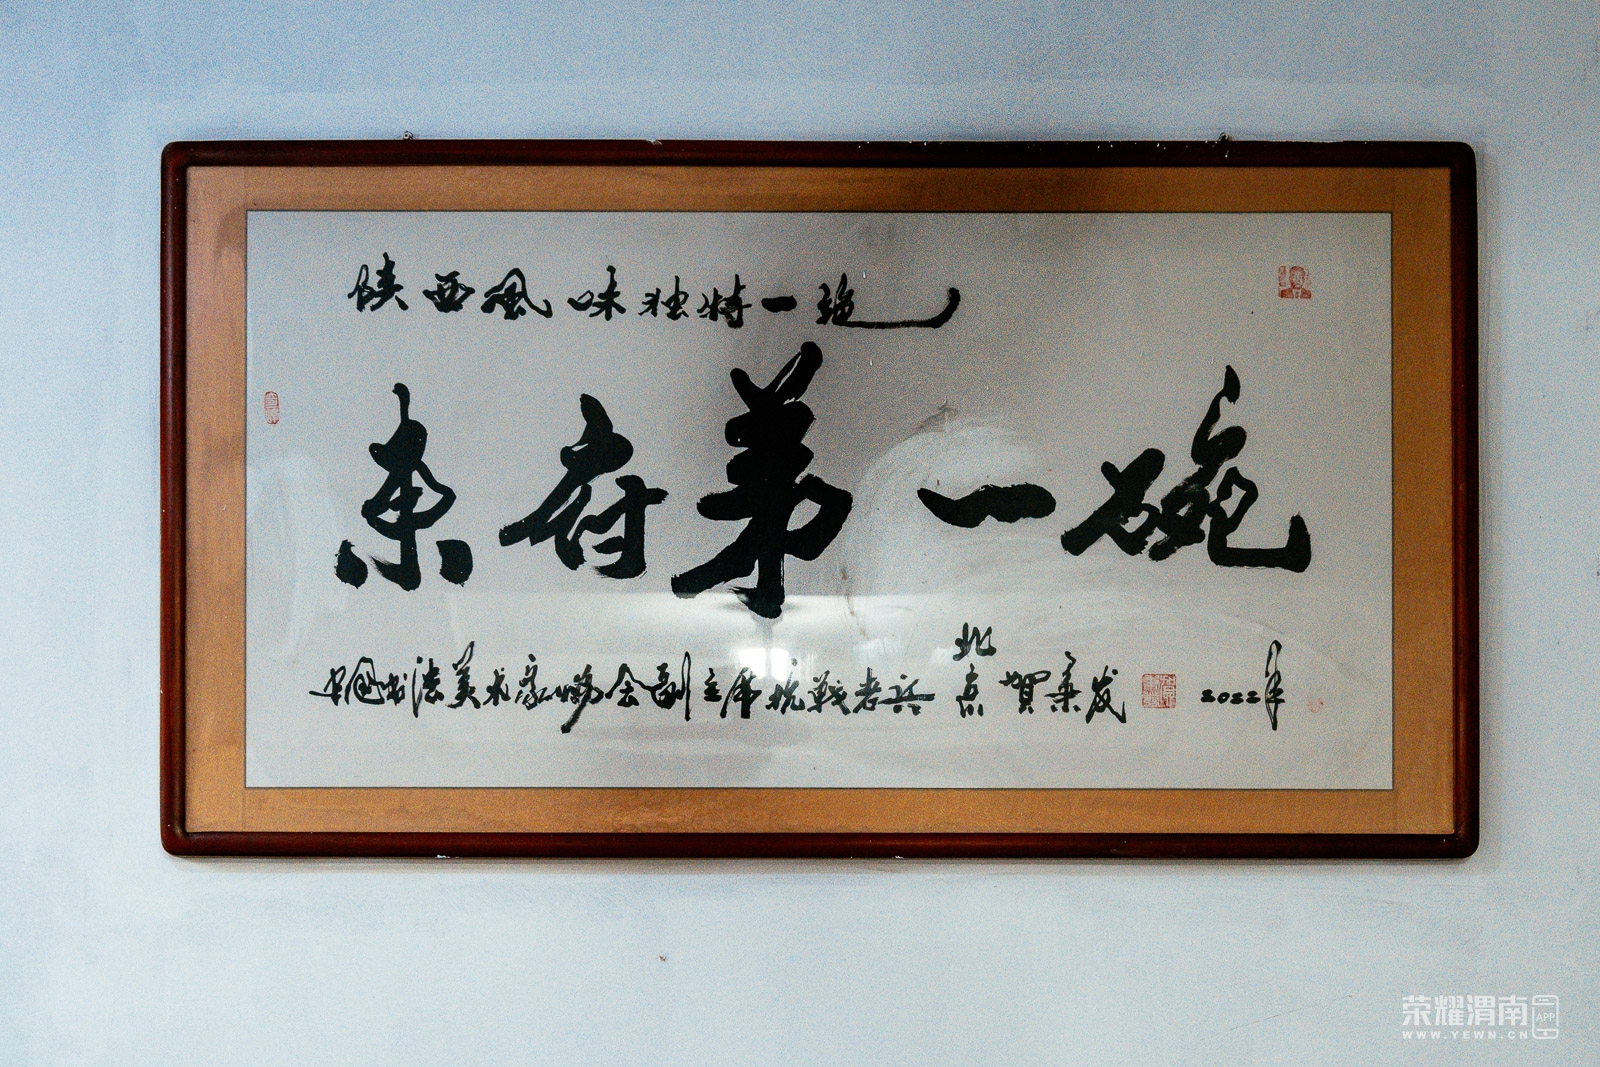 陕西風味独特一绝
东府第一碗
中国书法美术家协会副主席抗战老兵北京贺秉发
2022年
荣耀渭南
APP
WWW.YEWN.CN